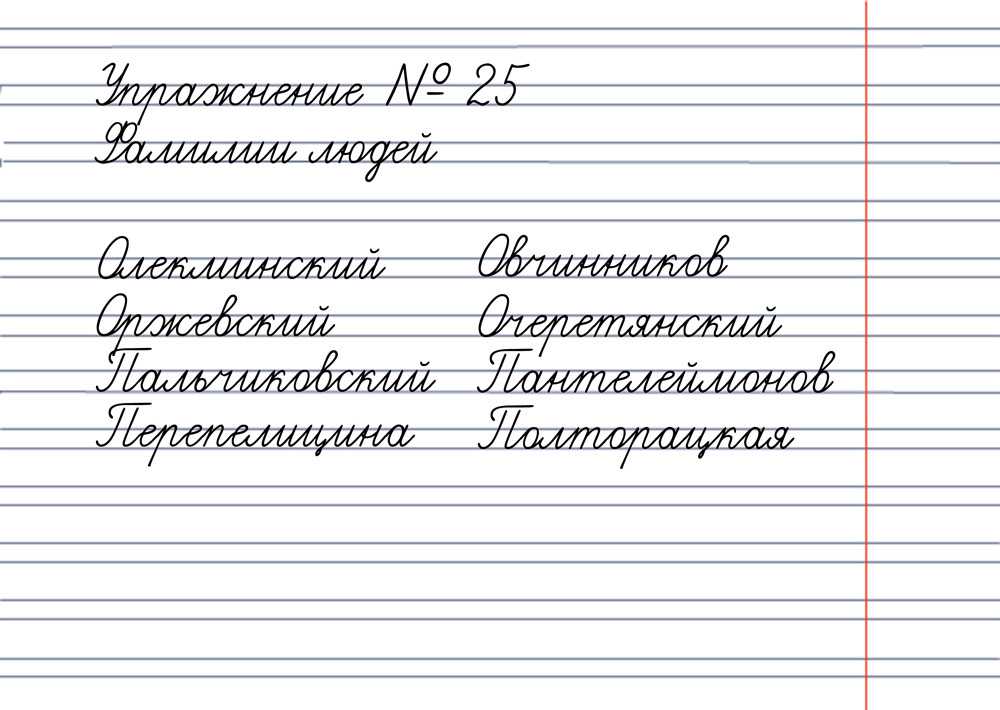 Упражнение № 25
Фамилии людей
Олекминский Овчинников
Оржевский Очеретянский
Пальчиковский Пантелеймонов
Перепелицина Полторацкая